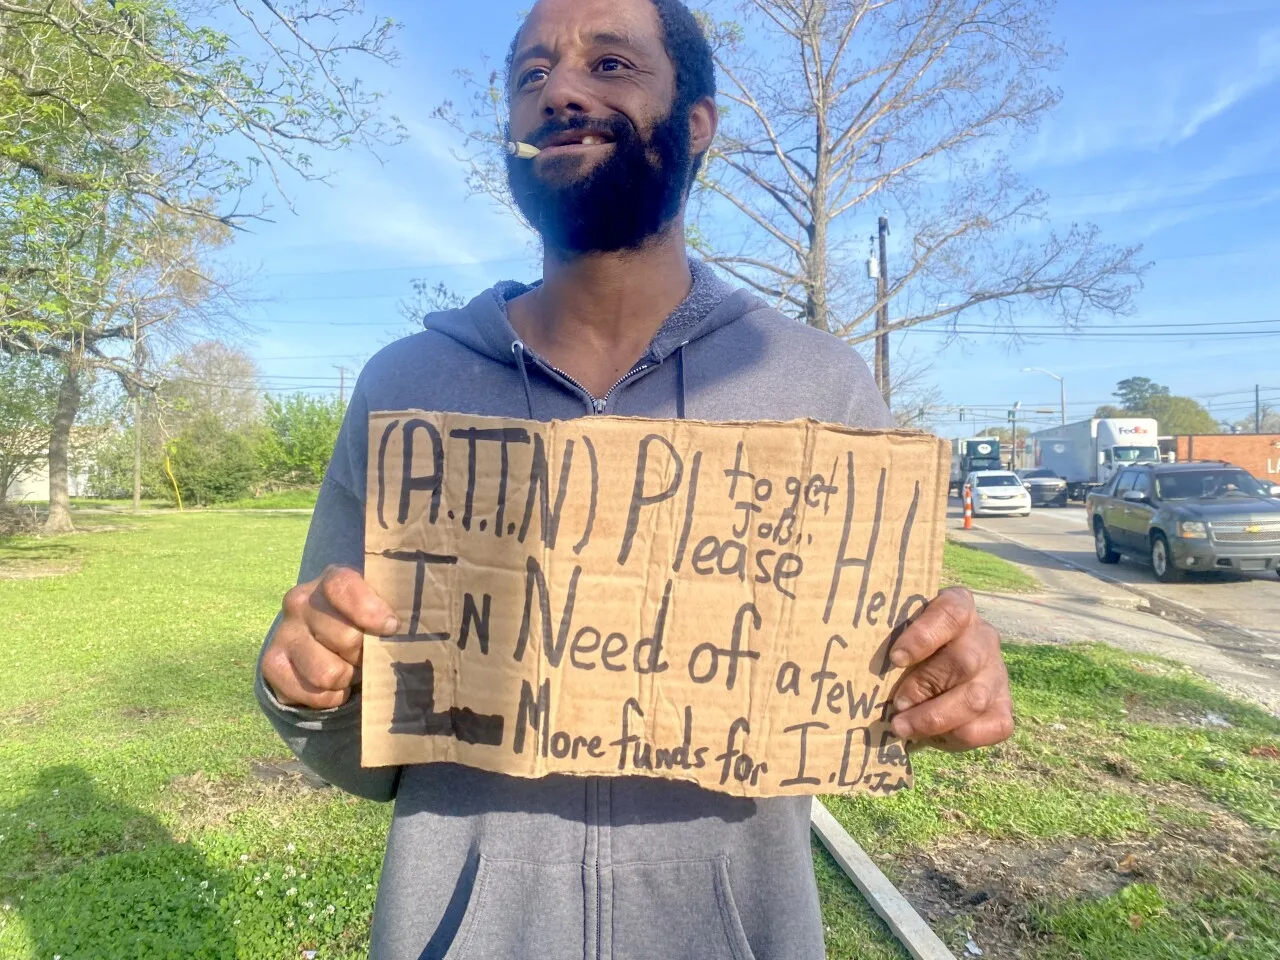 (A.T.T.N) Please Help
to get
JoB..
In Need of a few
More funds for I.D.
FedEx